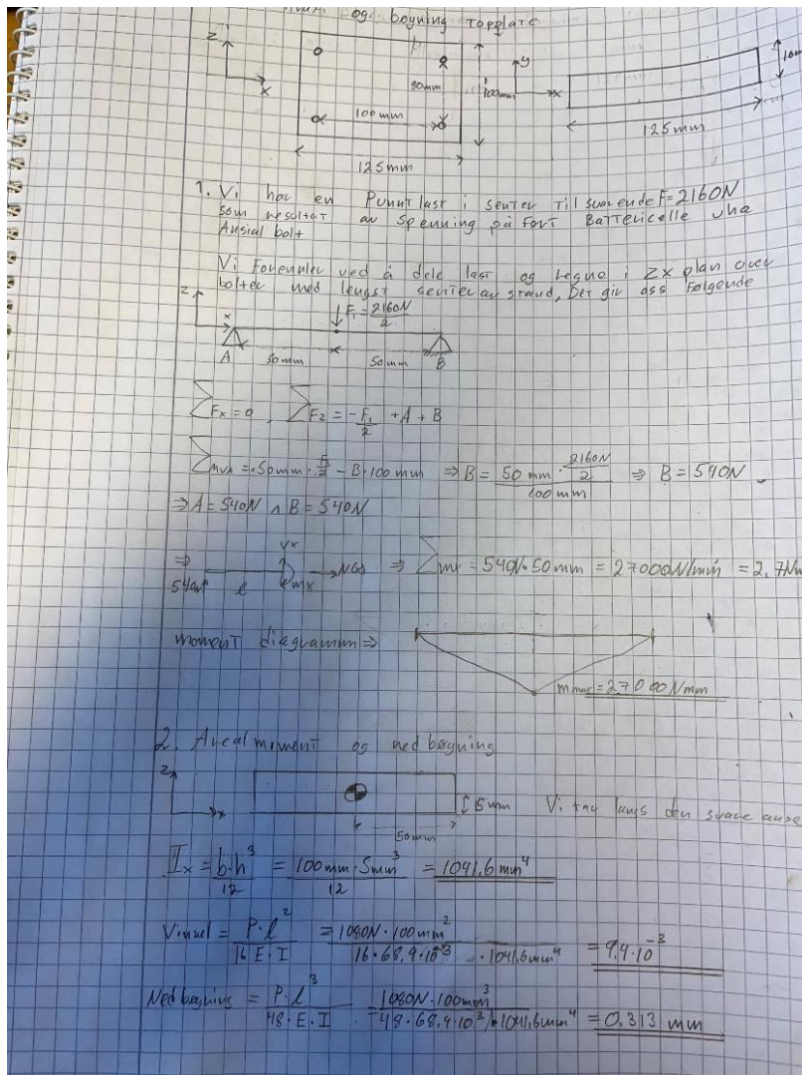 og. bøyning Topplate
z
x
80mm
100mm
100mm
125mm
y
x
10mm
125mm
1. Vi har en Punktlast i senter Tilsvarende F=2160N
som resultat av spenning på Fort Battericelle vha
Aksial bolt
Vi Forenkler ved å dele last og regne i ZX plan over
bolter med lengst senteravstand, Det gir oss Følgende
z
x
F₁=2160N/2
A
50mm
50mm
B
∑Fx=0, ∑Fz=-F₁/2+A+B
50mm·F₁/2 - B·100mm ⇒ B= 50mm·2160N/2 / 100mm ⇒ B=540N
⇒ A=540N ∧ B=540N
⇒
Vx
540N
l
mx
⇒ ∑mx = 540N·50mm = 27000N/mm = 2,7Nm
moment diagramm ⇒
m max = 27000Nmm
2. Areal moment og nedbøyning
z
x
5mm
50mm
Vi tar langs den svake
Ix = b·h³/12 = 100mm·5mm³/12 = 1041,6mm⁴
Vinkel = P·l²/16E·I = 1080N·100mm²/16·68,9·10⁻³·1041,6mm⁴ = 9,4·10⁻³
Nedbøyning = P·l³/48·E·I = 1080N·100mm³/48·68,9·10³·1041,6mm⁴ = 0,313 mm